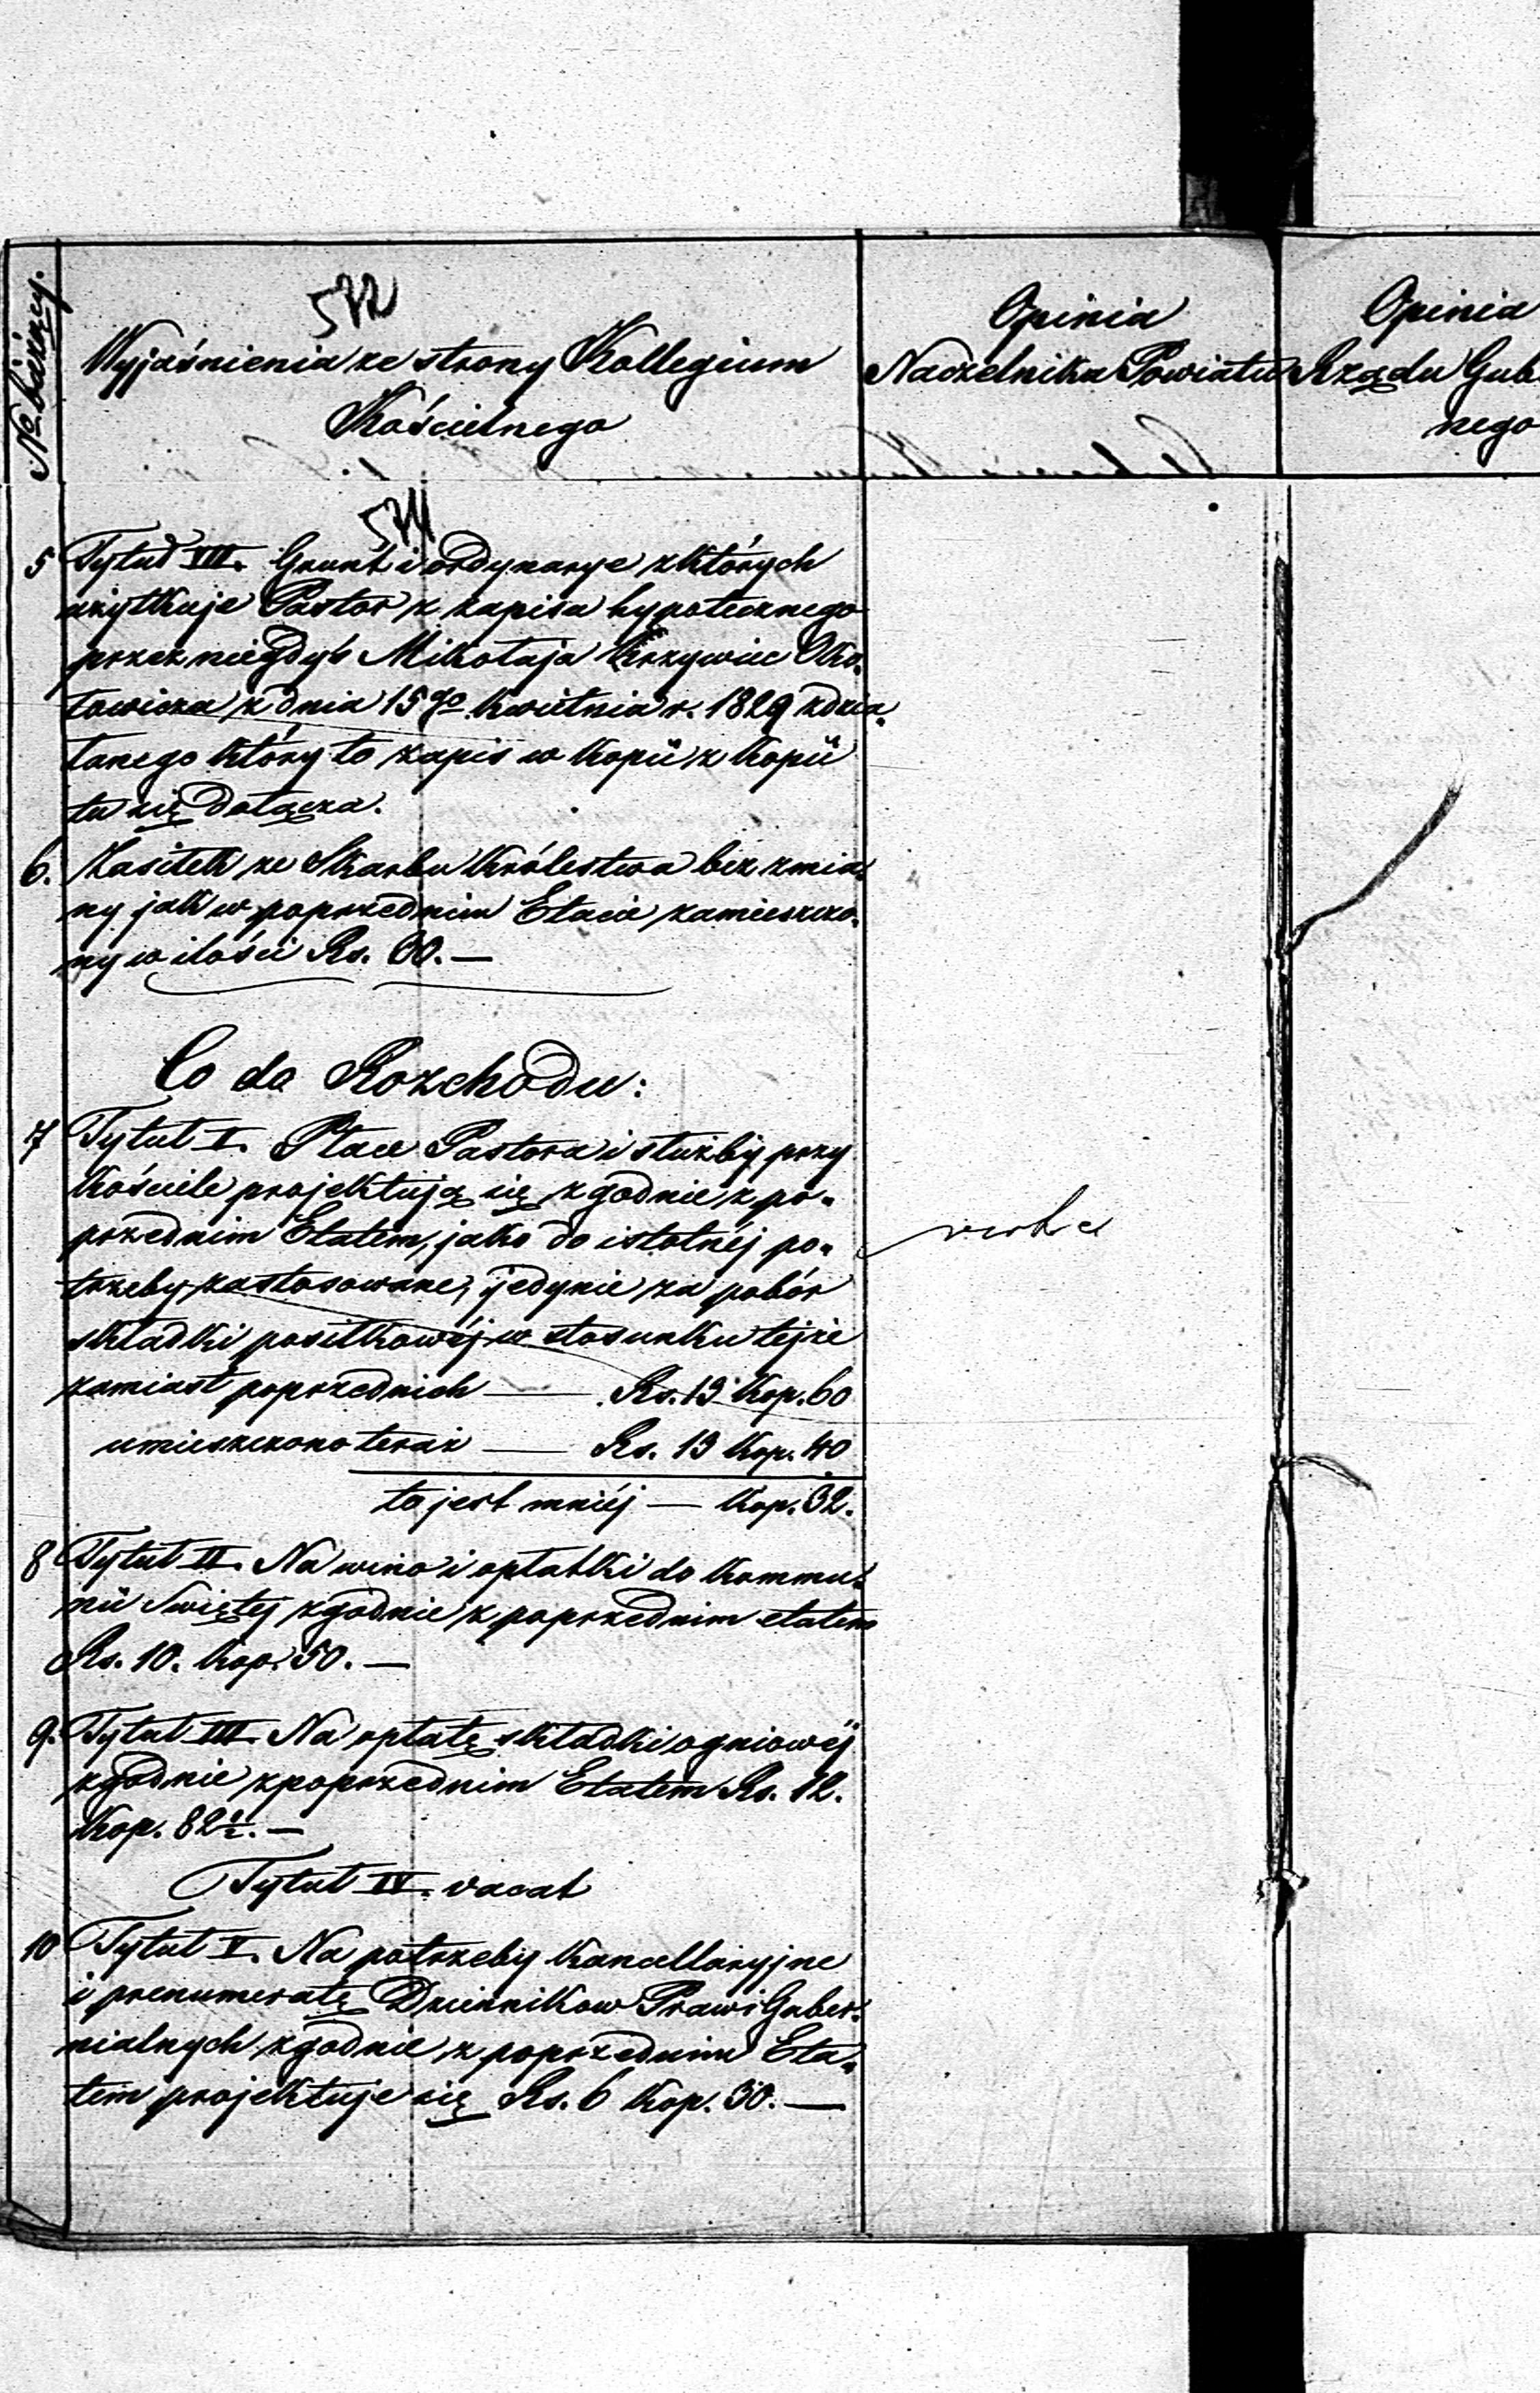 No bieżący.
572
Wyjaśnienia ze strony Kollegium
Kościelnego
Opinia
Naczelnika Powiatu
Opinia
Rządu Guber
nego
574
5 Tytuł VIII. Grunt i ordynarye z których
użytkuje Pastor z zapisu hypotecznego
przez niegdyś Mikołaja Krzywiec Oko-
łowicza z dnia 15go Kwietnia r. 1829 zdzia-
łanego który to zapis w kopii z kopii
tu się dołącza.
6. Zasiłek ze Skarbu Królestwa bez zmia-
ny jak w poprzednim Etacie zamieszczo-
ny w ilości Rs. 60. —
Co do Rozchodu:
7 Tytuł I. Płace Pastora i służby przy
Kościele projektują się zgodnie z po-
przednim Etatem, jako do istotnéj po-
trzeby zastosowane, jedynie za pobór
składki posiłkowéj w stosunku tejże
zamiast poprzednich — Rs. 13 Kop. 60
umieszczono teraz — Rs. 13 Kop. 40
to jest mniéj — Kop. 32.
8 Tytuł II. Na wino i opłatki do Kommu-
nii Swiętej zgodnie z poprzednim etatem
Rs. 10. Kop. 50. —
9. Tytuł III. Na opłatę składki ogniowéj
zgodnie z poprzednim Etatem Rs. 12.
Kop. 82½. —
Tytuł IV. vacat
10 Tytuł V. Na potrzeby Kancellaryjne
i prenumeratę Dzienników Praw i Guber-
nialnych zgodnie z poprzednim Eta-
tem projektuje się Rs. 6 Kop. 30. —